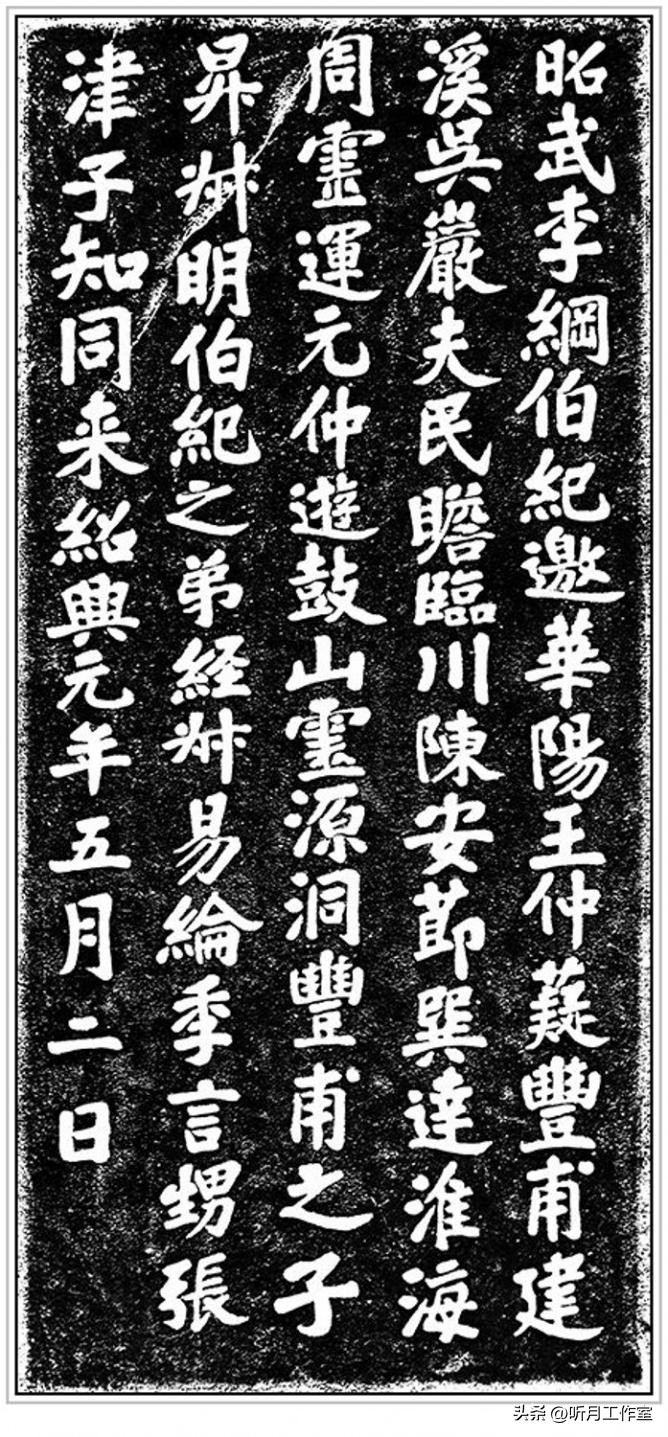 昭武李綱伯紀邀華陽王仲薿豐甫建
溪吳巖夫民瞻臨川陳安莭巽達淮海
周靈運元仲遊鼓山靈源洞豐甫之子
昇叔明伯紀之弟経叔易綸季言甥張
津子知同来紹興元年五月二日
头条 @听月工作室